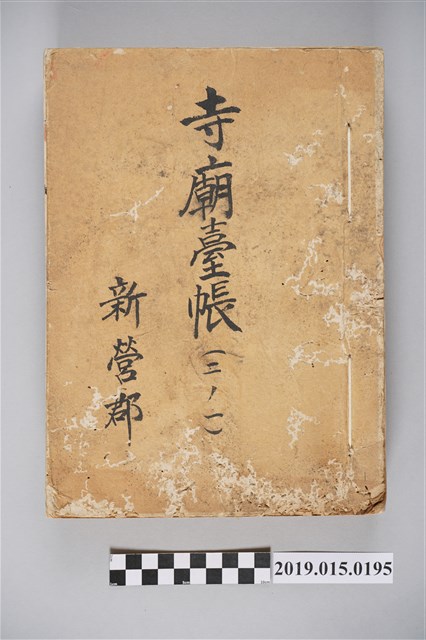 寺廟臺帳(三ノ一)
新營郡
2019.015.0195